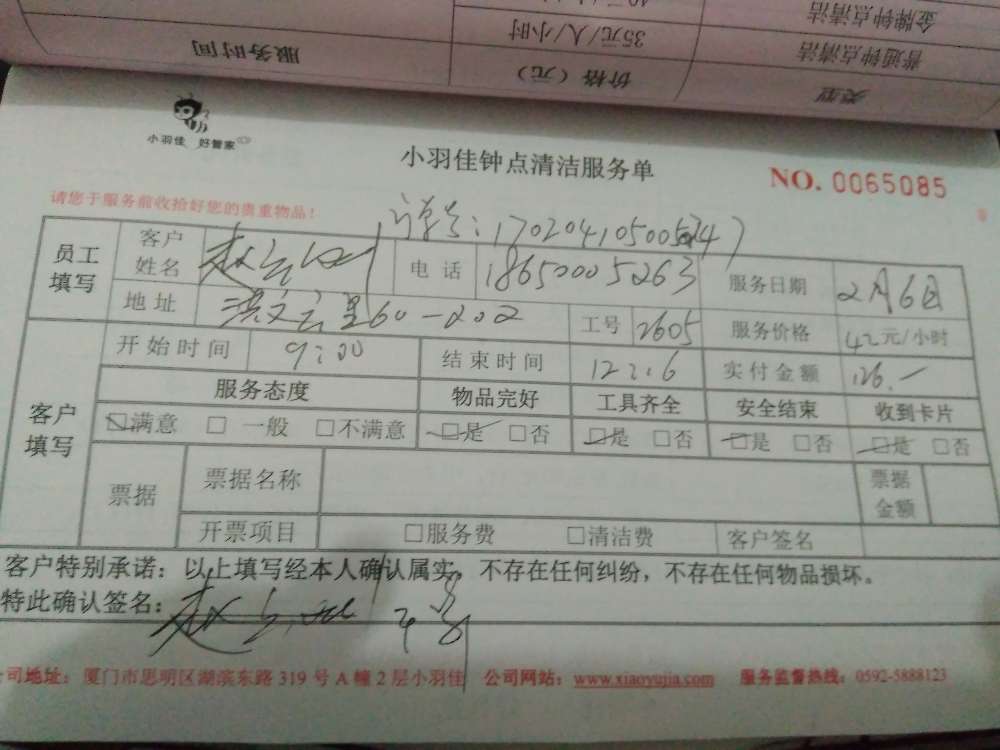 服务时间 价格（元） 类型
35元/人/小时 普通钟点清洁
金牌钟点清洁
小羽佳 好管家
小羽佳钟点清洁服务单
NO. 0065085
请您于服务前收拾好您的贵重物品！
员工填写 客户姓名 电话 18650005263 服务日期 2月6日
地址 洪文 60-202 工号 2605 服务价格 42元/小时
客户填写 开始时间 9:00 结束时间 实付金额 126.-
服务态度 物品完好 工具齐全 安全结束 收到卡片
满意 □ 一般 □不满意 □是 □否 □是 □否 □是 □否 □是 □否
票据 票据名称 票据金额
开票项目 □服务费 □清洁费 客户签名
客户特别承诺：以上填写经本人确认属实，不存在任何纠纷，不存在任何物品损坏。
特此确认签名：
司地址：厦门市思明区湖滨东路 319 号 A 幢 2 层小羽佳 公司网站：www.xiaoyujia.com 服务监督热线：0592-5888123